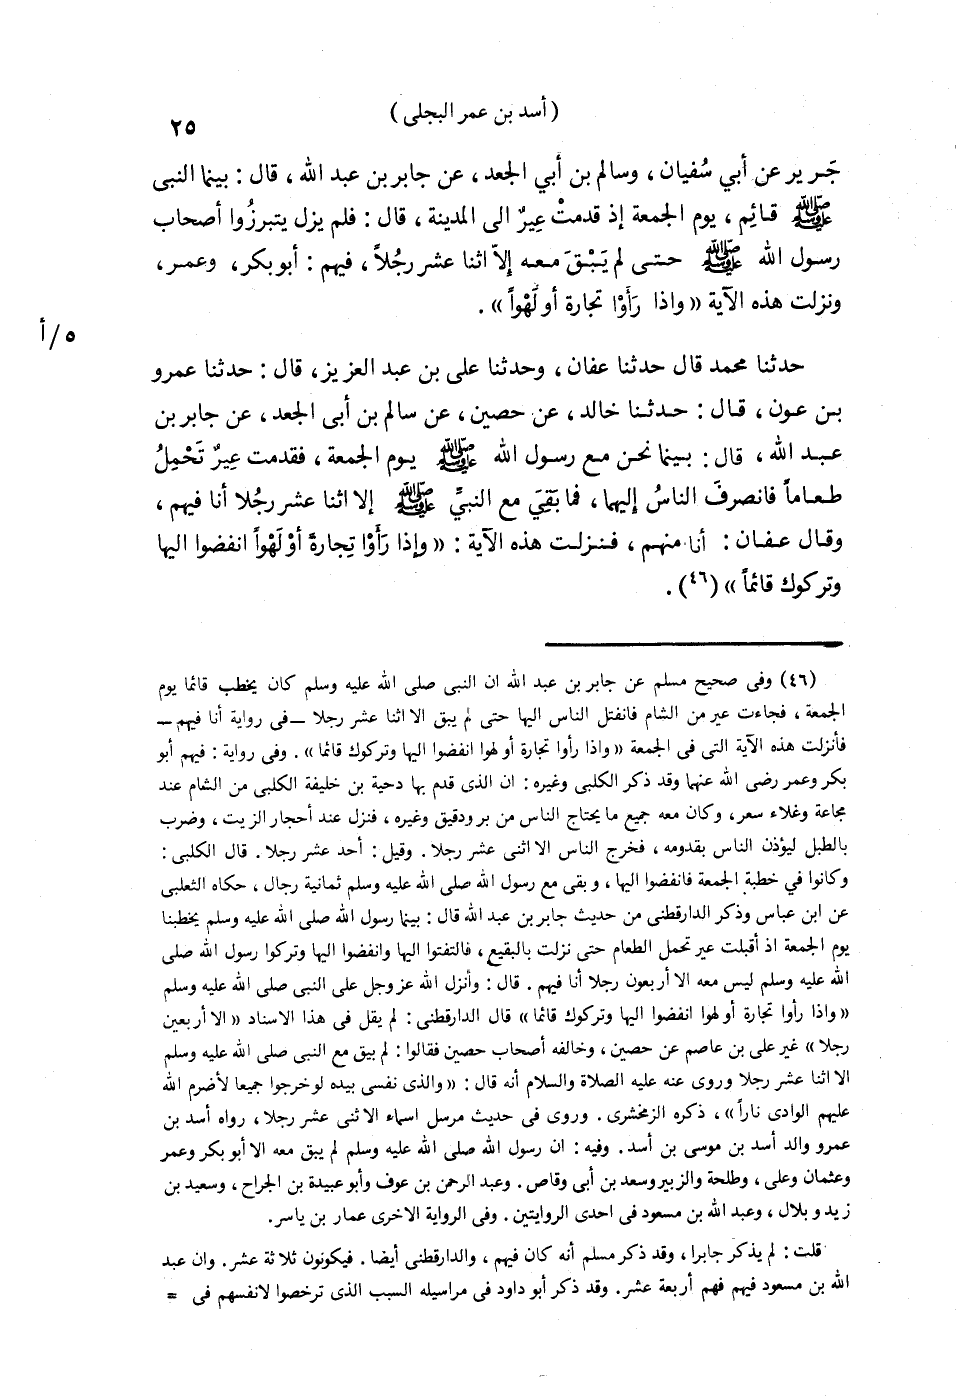 ( أسد بن عمر البجلى )
٢٥
جَرير عن أبي سُفيان ، وسالم بن أبي الجعد ، عن جابر بن عبد الله ، قال : بينما النبى
ﷺ قائِم ، يوم الجمعة إذ قدمتْ عِيرٌ الى المدينة ، قال : فلم يزل يتبرزُوا أصحاب
رسول الله ﷺ حتى لم يَبْقَ معه إلاّ اثنا عشر رجُلاً ، فيهم : أبو بكر ، وعمر ،
ونزلت هذه الآية « واذا رَأَوْا تجارة أو لَهْواً » .
٥/أ
حدثنا محمد قال حدثنا عفان ، وحدثنا على بن عبد العزيز ، قال : حدثنا عمرو
بن عون ، قال : حدثنا خالد ، عن حصين ، عن سالم بن أبى الجعد ، عن جابر بن
عبد الله ، قال : بينما نحن مع رسول الله ﷺ يوم الجمعة ، فقدمت عِيرٌ تَحْمِلُ
طعاماً فانصرفَ الناسُ إليها ، فما بَقِيَ مع النبيِّ ﷺ إلا اثنا عشر رجُلا أنا فيهم ،
وقال عفان : أنا منهم ، فنزلت هذه الآية : « وإذا رَأَوْا تِجارةً أوْ لَهْواً انفضوا اليها
وتركوك قائماً » (٤٦) .
(٤٦) وفى صحيح مسلم عن جابر بن عبد الله ان النبى صلى الله عليه وسلم كان يخطب قائما يوم
الجمعة ، فجاءت عير من الشام فانفتل الناس اليها حتى لم يبق الا اثنا عشر رجلا ــ فى رواية أنا فيهم ــ
فأنزلت هذه الآية التى فى الجمعة « واذا رأوا تجارة أو لهوا انفضوا اليها وتركوك قائما » . وفى رواية : فيهم أبو
بكر وعمر رضى الله عنهما وقد ذكر الكلبى وغيره : ان الذى قدم بها دحية بن خليفة الكلبى من الشام عند
مجاعة وغلاء سعر ، وكان معه جميع ما يحتاج الناس من بر ودقيق وغيره ، فنزل عند أحجار الزيت ، وضرب
بالطبل ليؤذن الناس بقدومه ، فخرج الناس الا اثنى عشر رجلا . وقيل : أحد عشر رجلا . قال الكلبى :
وكانوا في خطبة الجمعة فانفضوا اليها ، وبقى مع رسول الله صلى الله عليه وسلم ثمانية رجال ، حكاه الثعلبى
عن ابن عباس وذكر الدارقطنى من حديث جابر بن عبد الله قال : بينما رسول الله صلى الله عليه وسلم يخطبنا
يوم الجمعة اذ أقبلت عير تحمل الطعام حتى نزلت بالبقيع ، فالتفتوا اليها وانفضوا اليها وتركوا رسول الله صلى
الله عليه وسلم ليس معه الا أربعون رجلا أنا فيهم . قال : وأنزل الله عز وجل على النبى صلى الله عليه وسلم
« واذا رأوا تجارة أو لهوا انفضوا اليها وتركوك قائما » قال الدارقطنى : لم يقل فى هذا الاسناد « الا أربعين
رجلا » غير على بن عاصم عن حصين ، وخالفه أصحاب حصين فقالوا : لم يبق مع النبى صلى الله عليه وسلم
الا اثنا عشر رجلا وروى عنه عليه الصلاة والسلام أنه قال : « والذى نفسى بيده لو خرجوا جميعا لأضرم الله
عليهم الوادى ناراً » ، ذكره الزمخشرى . وروى فى حديث مرسل اسماء الاثنى عشر رجلا ، رواه أسد بن
عمرو والد أسد بن موسى بن أسد . وفيه : ان رسول الله صلى الله عليه وسلم لم يبق معه الا أبو بكر وعمر
وعثمان وعلى ، وطلحة والزبير وسعد بن أبى وقاص . وعبد الرحمن بن عوف وأبو عبيدة بن الجراح ، وسعيد بن
زيد وبلال ، وعبد الله بن مسعود فى احدى الروايتين . وفى الرواية الاخرى عمار بن ياسر .
قلت : لم يذكر جابرا ، وقد ذكر مسلم أنه كان فيهم ، والدارقطنى أيضا . فيكونون ثلاثة عشر . وان عبد
الله بن مسعود فيهم فهم أربعة عشر . وقد ذكر أبو داود فى مراسيله السبب الذى ترخصوا لانفسهم فى =